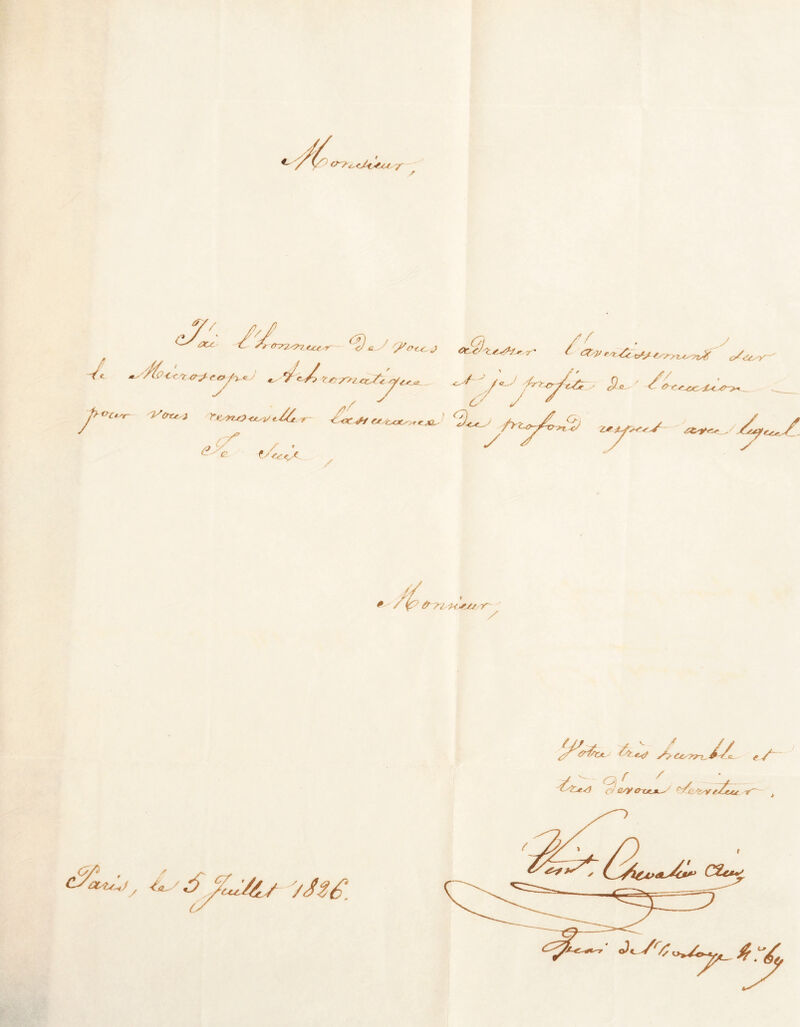 Monsieur,
J'ai l'honneur de vous adresser l'avertissement sur
le Microscope Achromatique et je profite de l'occasion
pour vous renouveller l'assurance du profond respect avec lequel
Je Suis,
Monsieur,
Votre très humble et
très dévoué serviteur,
Vint. Chevalier Ainé
Paris, le 5 Juillet 1826.
Quai de l'horloge N.o 69